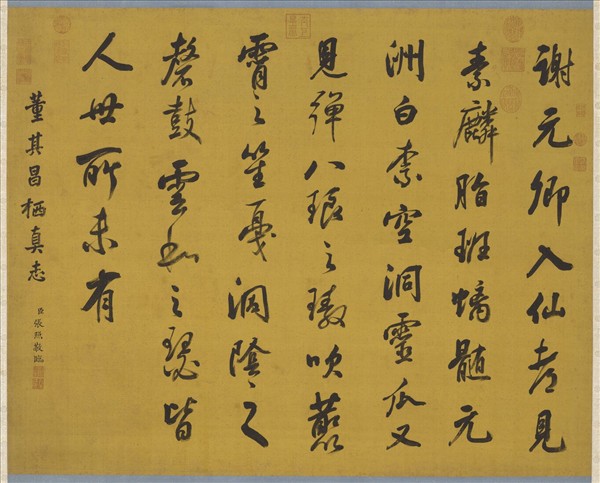 謝元卿入仙者見
素麟脂班螭髓元
洲白柰空洞靈瓜又
見彈八琅之璈吹叢
霄之笙戛洞陰之
磬鼓雲和之瑟皆
人世所未有
董其昌栖真志
臣張照敬臨